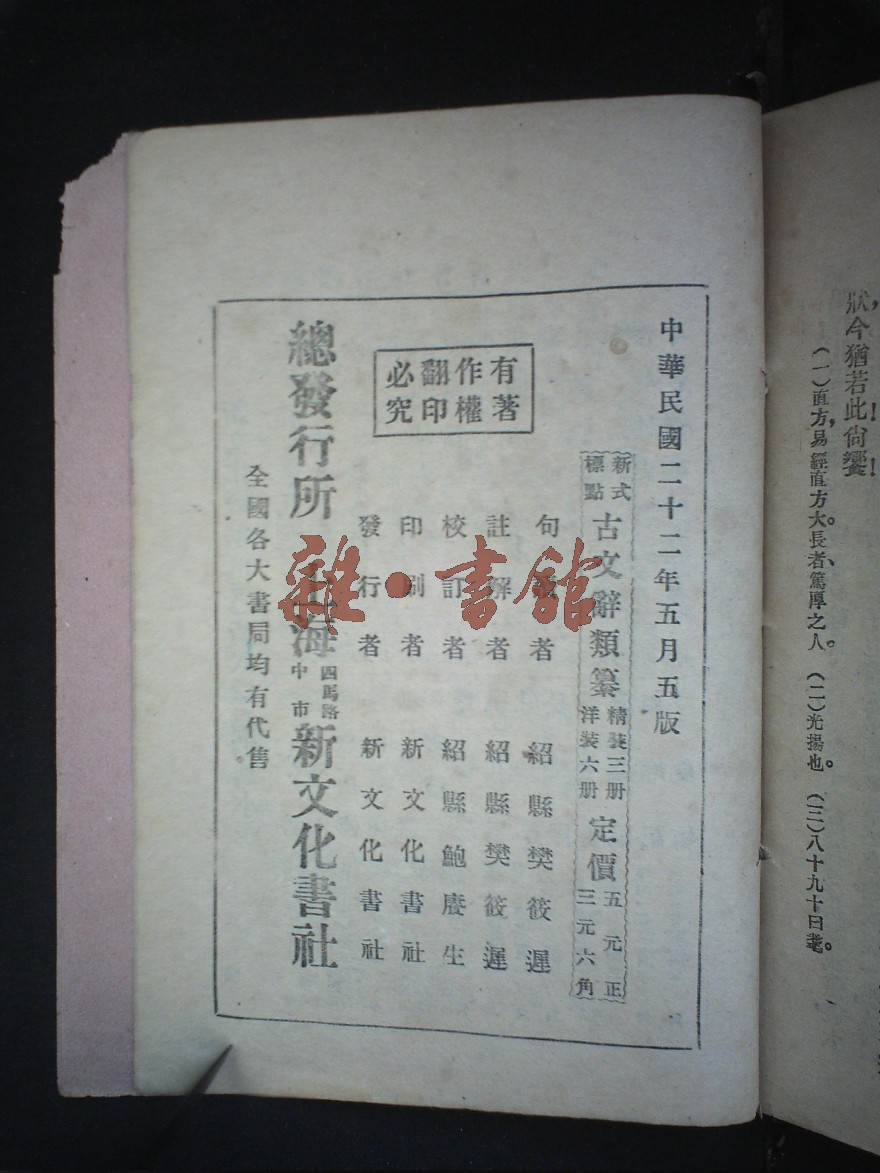 狀今猶若此！尙饗！
（一）直方，易經直方大。長者，篤厚之人。（二）光揚也。（三）八十九十曰耄。
中華民國二十二年五月五版
新式標點 古文辭類纂 精裝三册 洋裝六册 定價 五元正 三元六角
有著作權翻印必究
句讀者 紹縣樊筱遲
註解者 紹縣樊筱遲
校訂者 紹縣鮑賡生
印刷者 新文化書社
發行者 新文化書社
總發行所 上海四馬路中市 新文化書社
全國各大書局均有代售
雜·書館